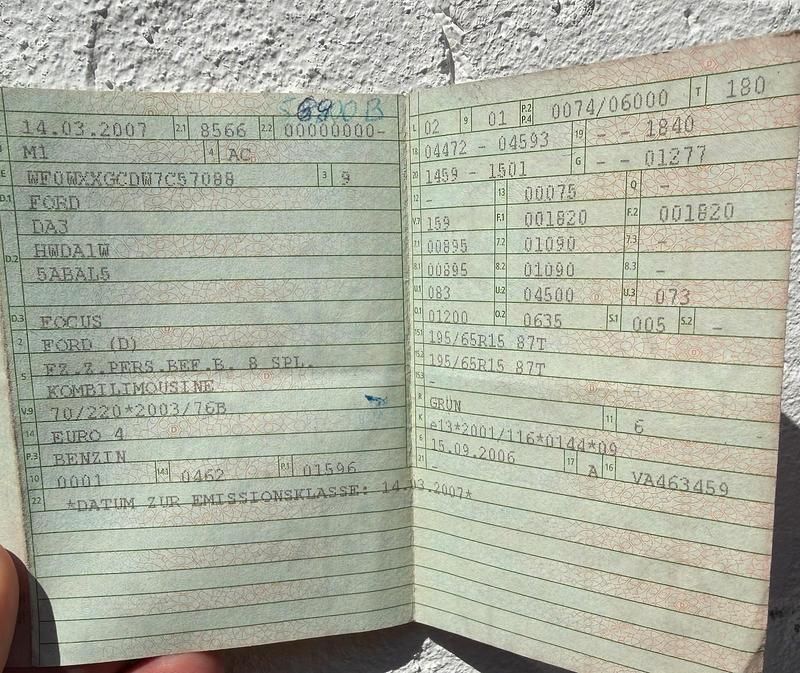 14.03.2007 2.1 8566 2.2 00000000-
M1 4 AC
E WF0WXXGCDW7C57088 3 9
D.1 FORD
DA3
D.2 HWDA1W
5ABAL5
D.3 FOCUS
2 FORD (D)
5 FZ.Z.PERS.BEF.B. 8 SPL.
KOMBILIMOUSINE
V.9 70/220*2003/76B
14 EURO 4
P.3 BENZIN
10 0001 14.1 0462 P.1 01596
22 *DATUM ZUR EMISSIONSKLASSE: 14.03.2007*
L 02 9 01 P.2 P.4 0074/06000 T 180
18 04472 - 04593 19 - - 1840
20 1459 - 1501 G - - 01277
12 - 13 00075 Q -
V.7 159 F.1 001820 F.2 001820
7.1 00895 7.2 01090 7.3 -
8.1 00895 8.2 01090 8.3 -
U.1 083 U.2 04500 U.3 073
O.1 01200 O.2 0635 S.1 005 S.2 -
15.1 195/65R15 87T
15.2 195/65R15 87T
15.3 -
R GRÜN 11 6 -
K e13*2001/116*0144*09
6 15.09.2006 17 A 16 VA463459
21 -